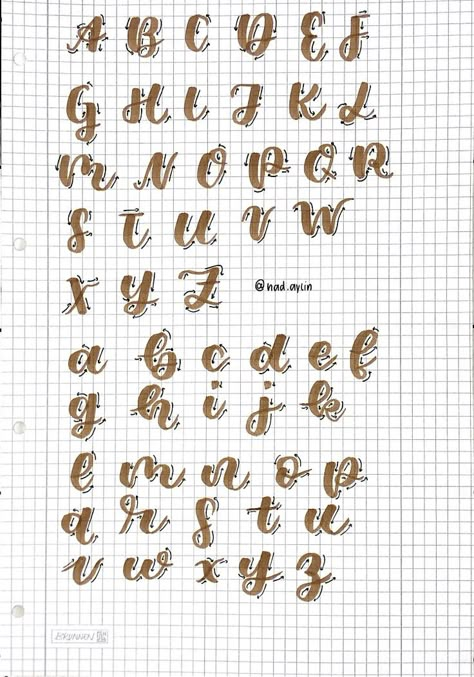 A B C D E F
G H I J K L
M N O P Q R
S T U V W
X Y Z @nad.aylin
a b c d e f
g h i j k
l m n o p
q r s t u
v w x y z